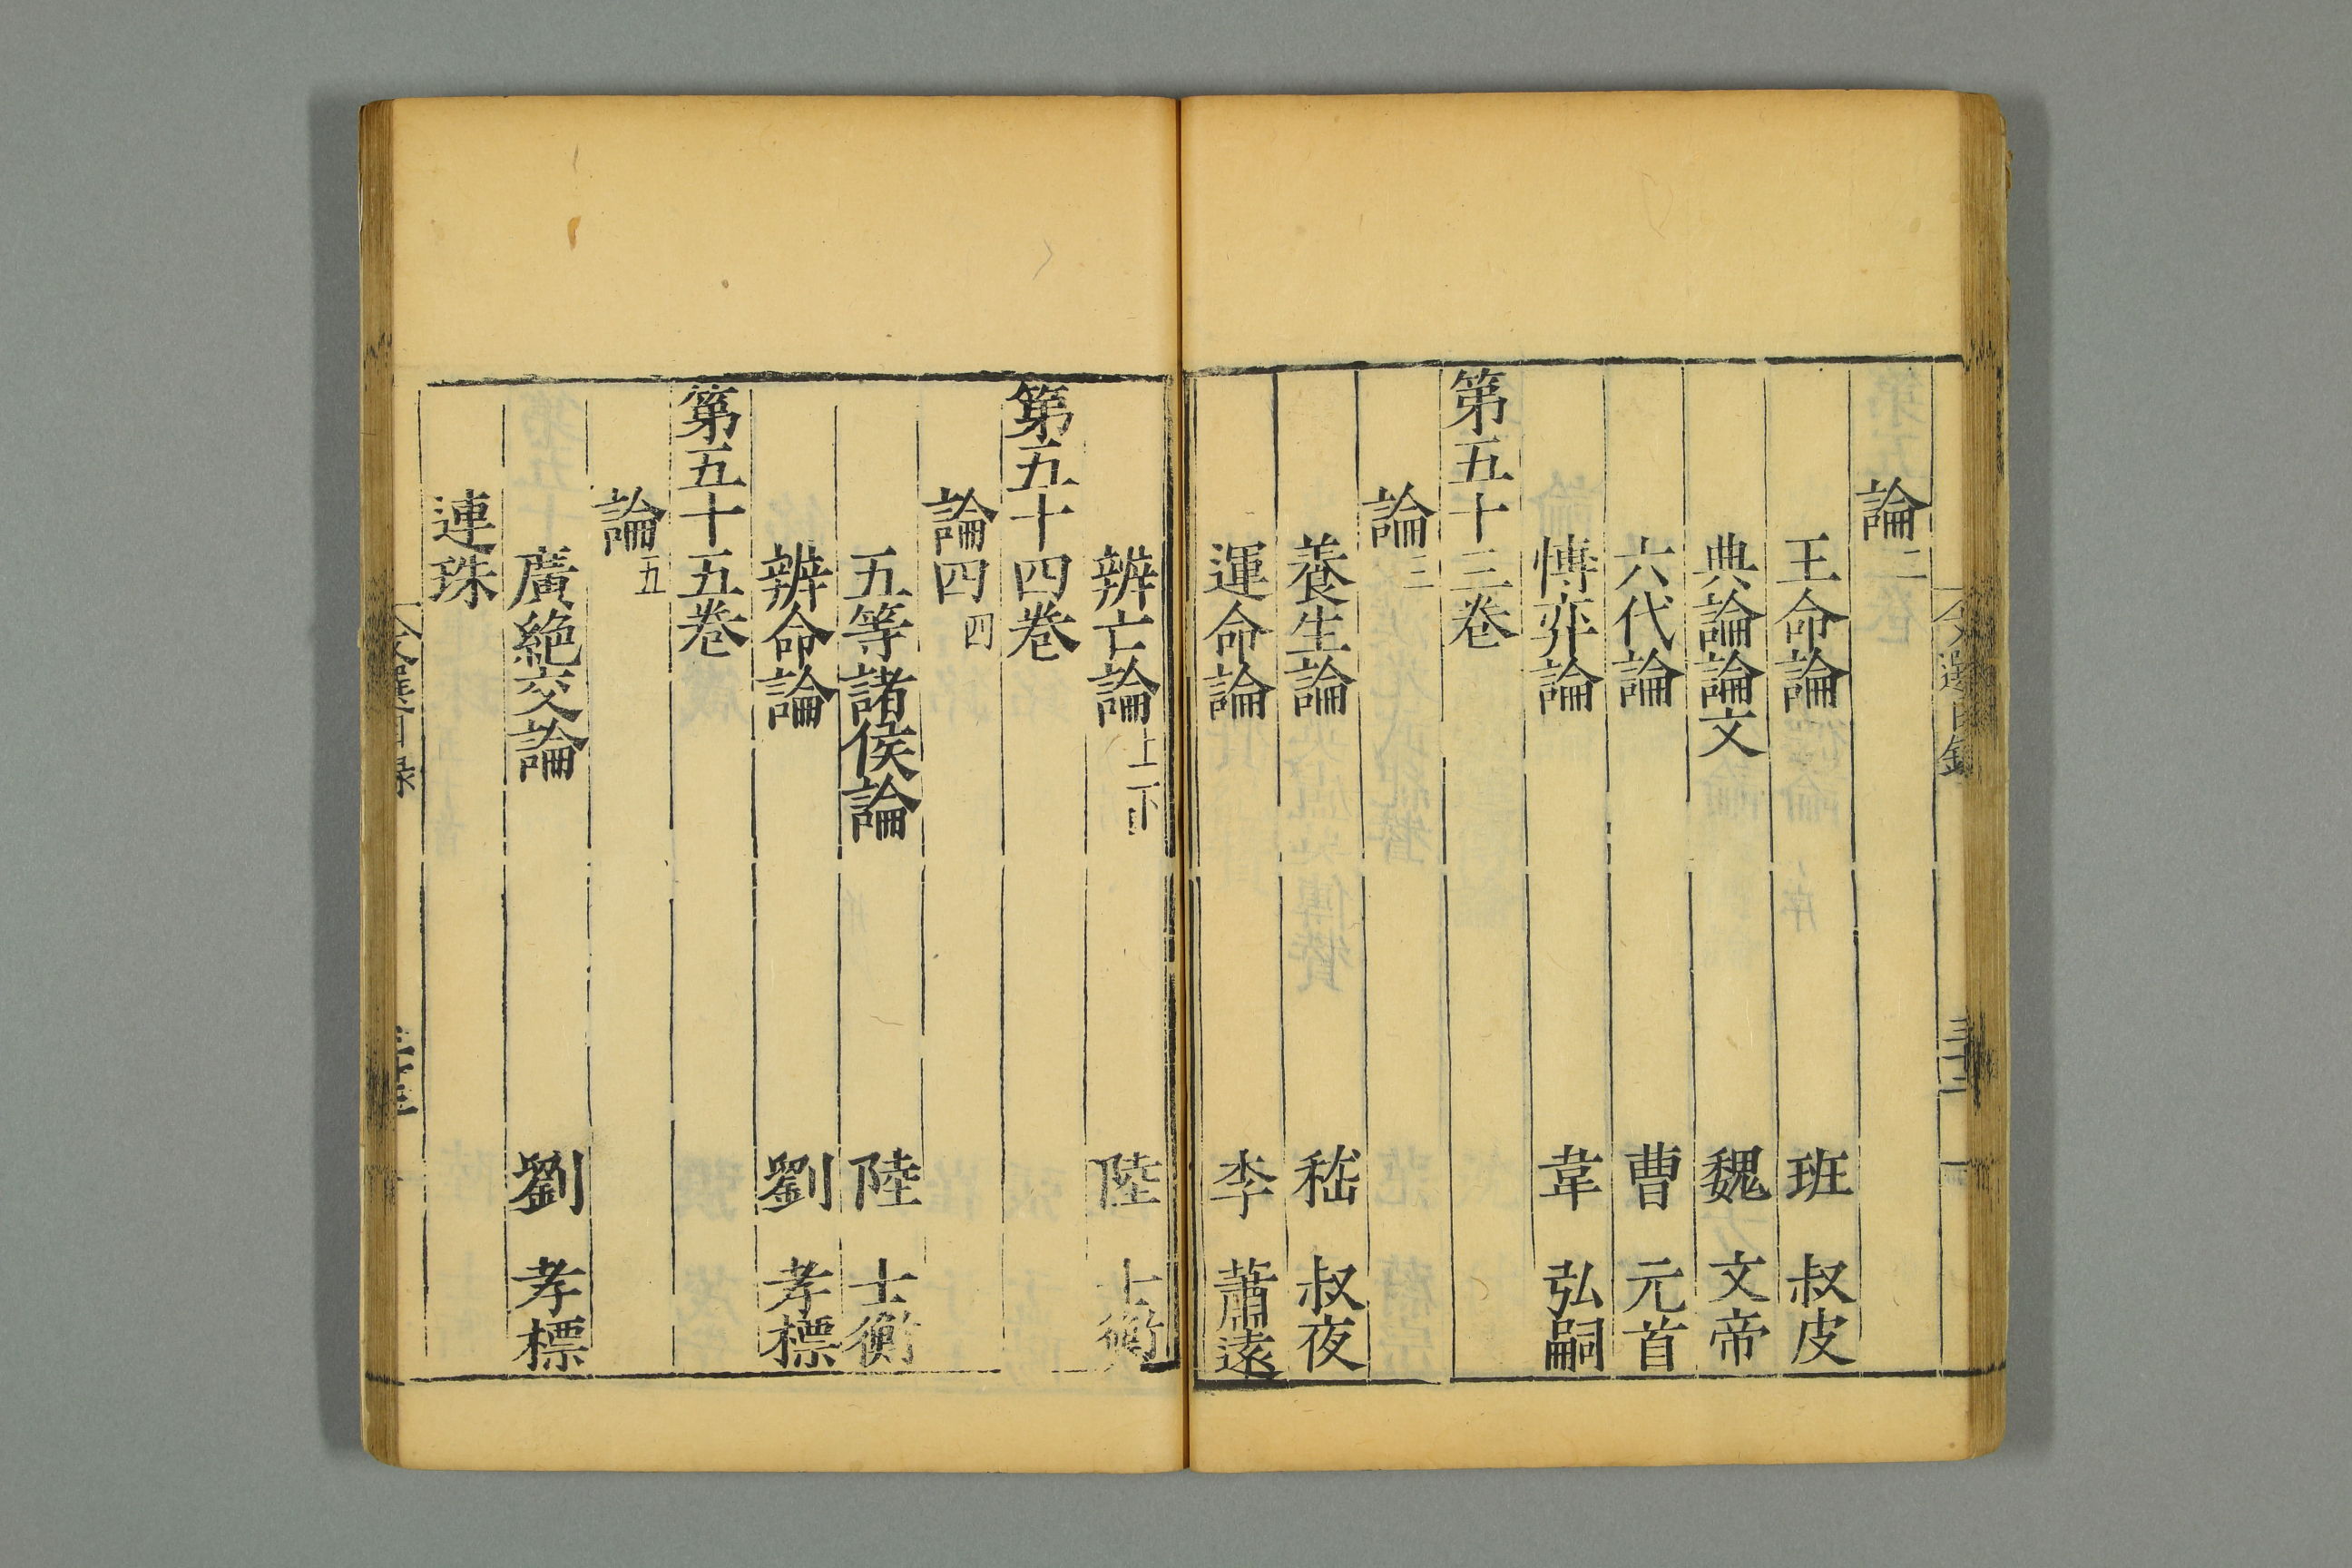 論二
王命論 班 叔皮
典論論文 魏 文帝
六代論 曹 元首
愽弈論 韋 弘嗣
第五十三卷
論三
養生論 嵇 叔夜
運命論 李 蕭遠
辨亡論上下 陸 士衡
第五十四卷
論四四
五等諸侯論 陸 士衡
辨命論 劉 孝標
第五十五卷
論五
廣絕交論 劉 孝標
連珠
文選目録